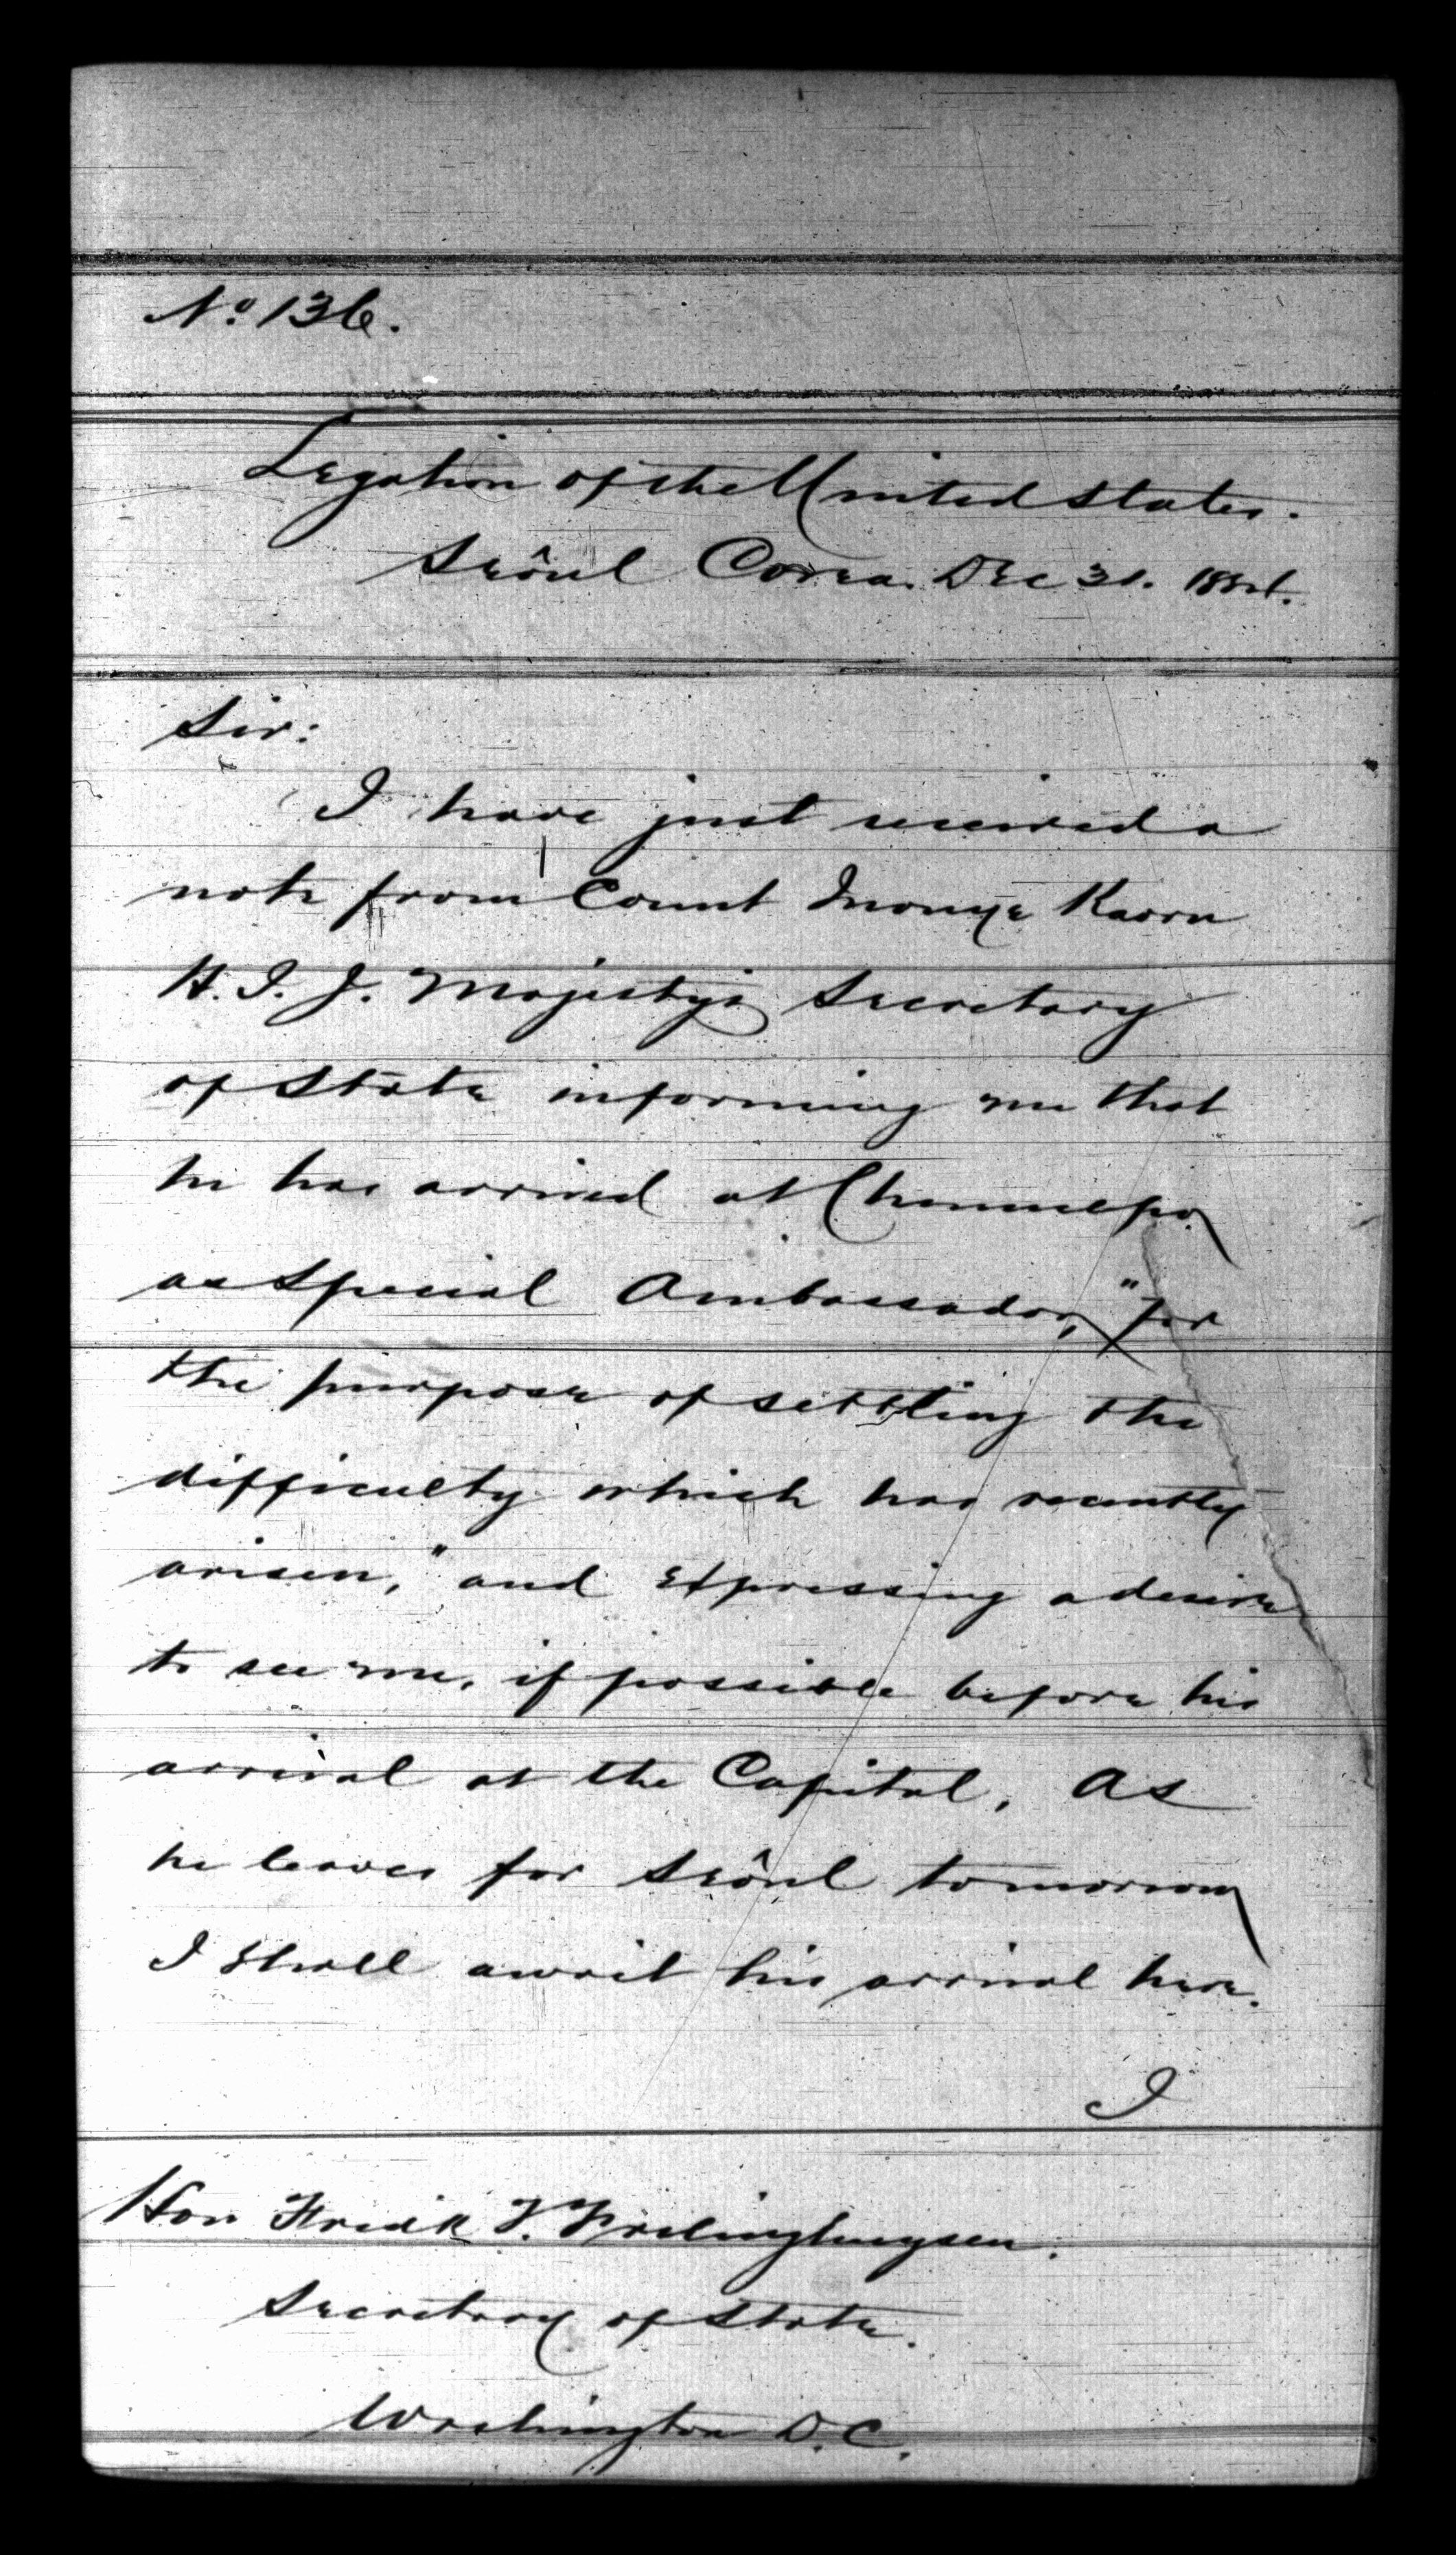 No. 136.
Legation of the United States.
Seôul Corea. Dec 31. 1884.
Sir:
I have just received a
note from Count Inouye Kaoru
H. I. J. Majesty's Secretary
of State informing me that
he has arrived at Chemulpo
as Special Ambassador, "for
the purpose of settling the
difficulty which has recently
arisen," and expressing a desire
to see me, if possible before his
arrival at the Capital. As
he leaves for Seôul tomorrow
I shall await his arrival here.
I
Hon Fredk T. Frelinghuysen.
Secretary of State.
Washington D.C.